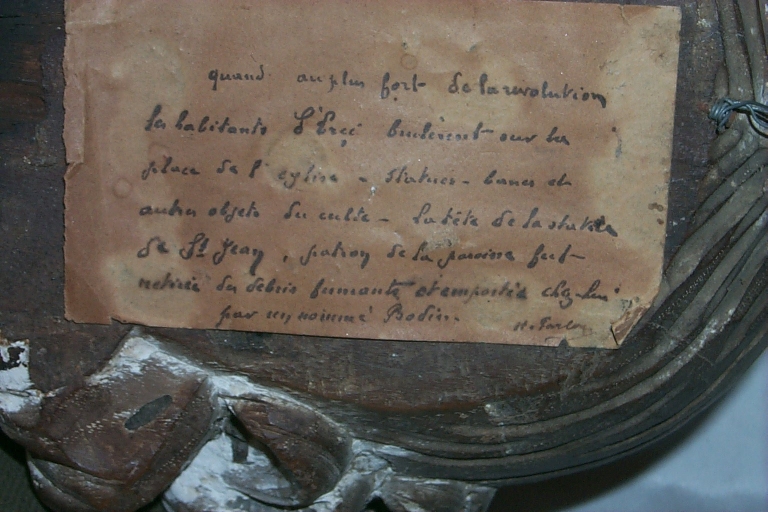 quand au plus fort de la révolution
les habitants d'Ercé brulèrent sur la
place de l'église - statues - bancs et
autres objets du culte - la tête de la statue
de St Jean, patron de la paroisse fut
retirée des débris fumants et emportée chez lui
par un nommé Bodin.